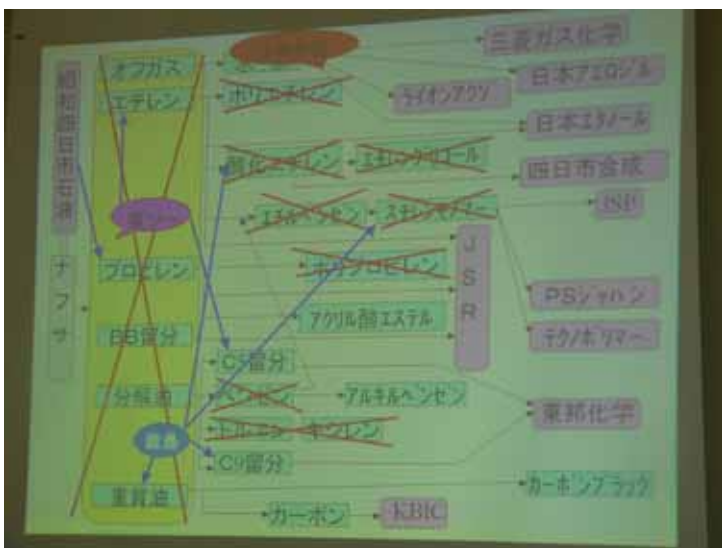 昭和四日市石油
ナフサ
オフガス
エチレン
プロピレン
BB留分
分解油
重質油
ポリエチレン
酸化エチレン
エチレングリコール
エチルベンゼン
スチレンモノマー
ポリプロピレン
アクリル酸エステル
C5留分
ベンゼン
アルキルベンゼン
トルエン
キシレン
C9留分
カーボン
KBIC
ライオンアクゾ
JSR
三菱ガス化学
日本アエロジル
日本エタノール
四日市合成
ISP
PSジャパン
テクノポリマー
東邦化学
カーボンブラック